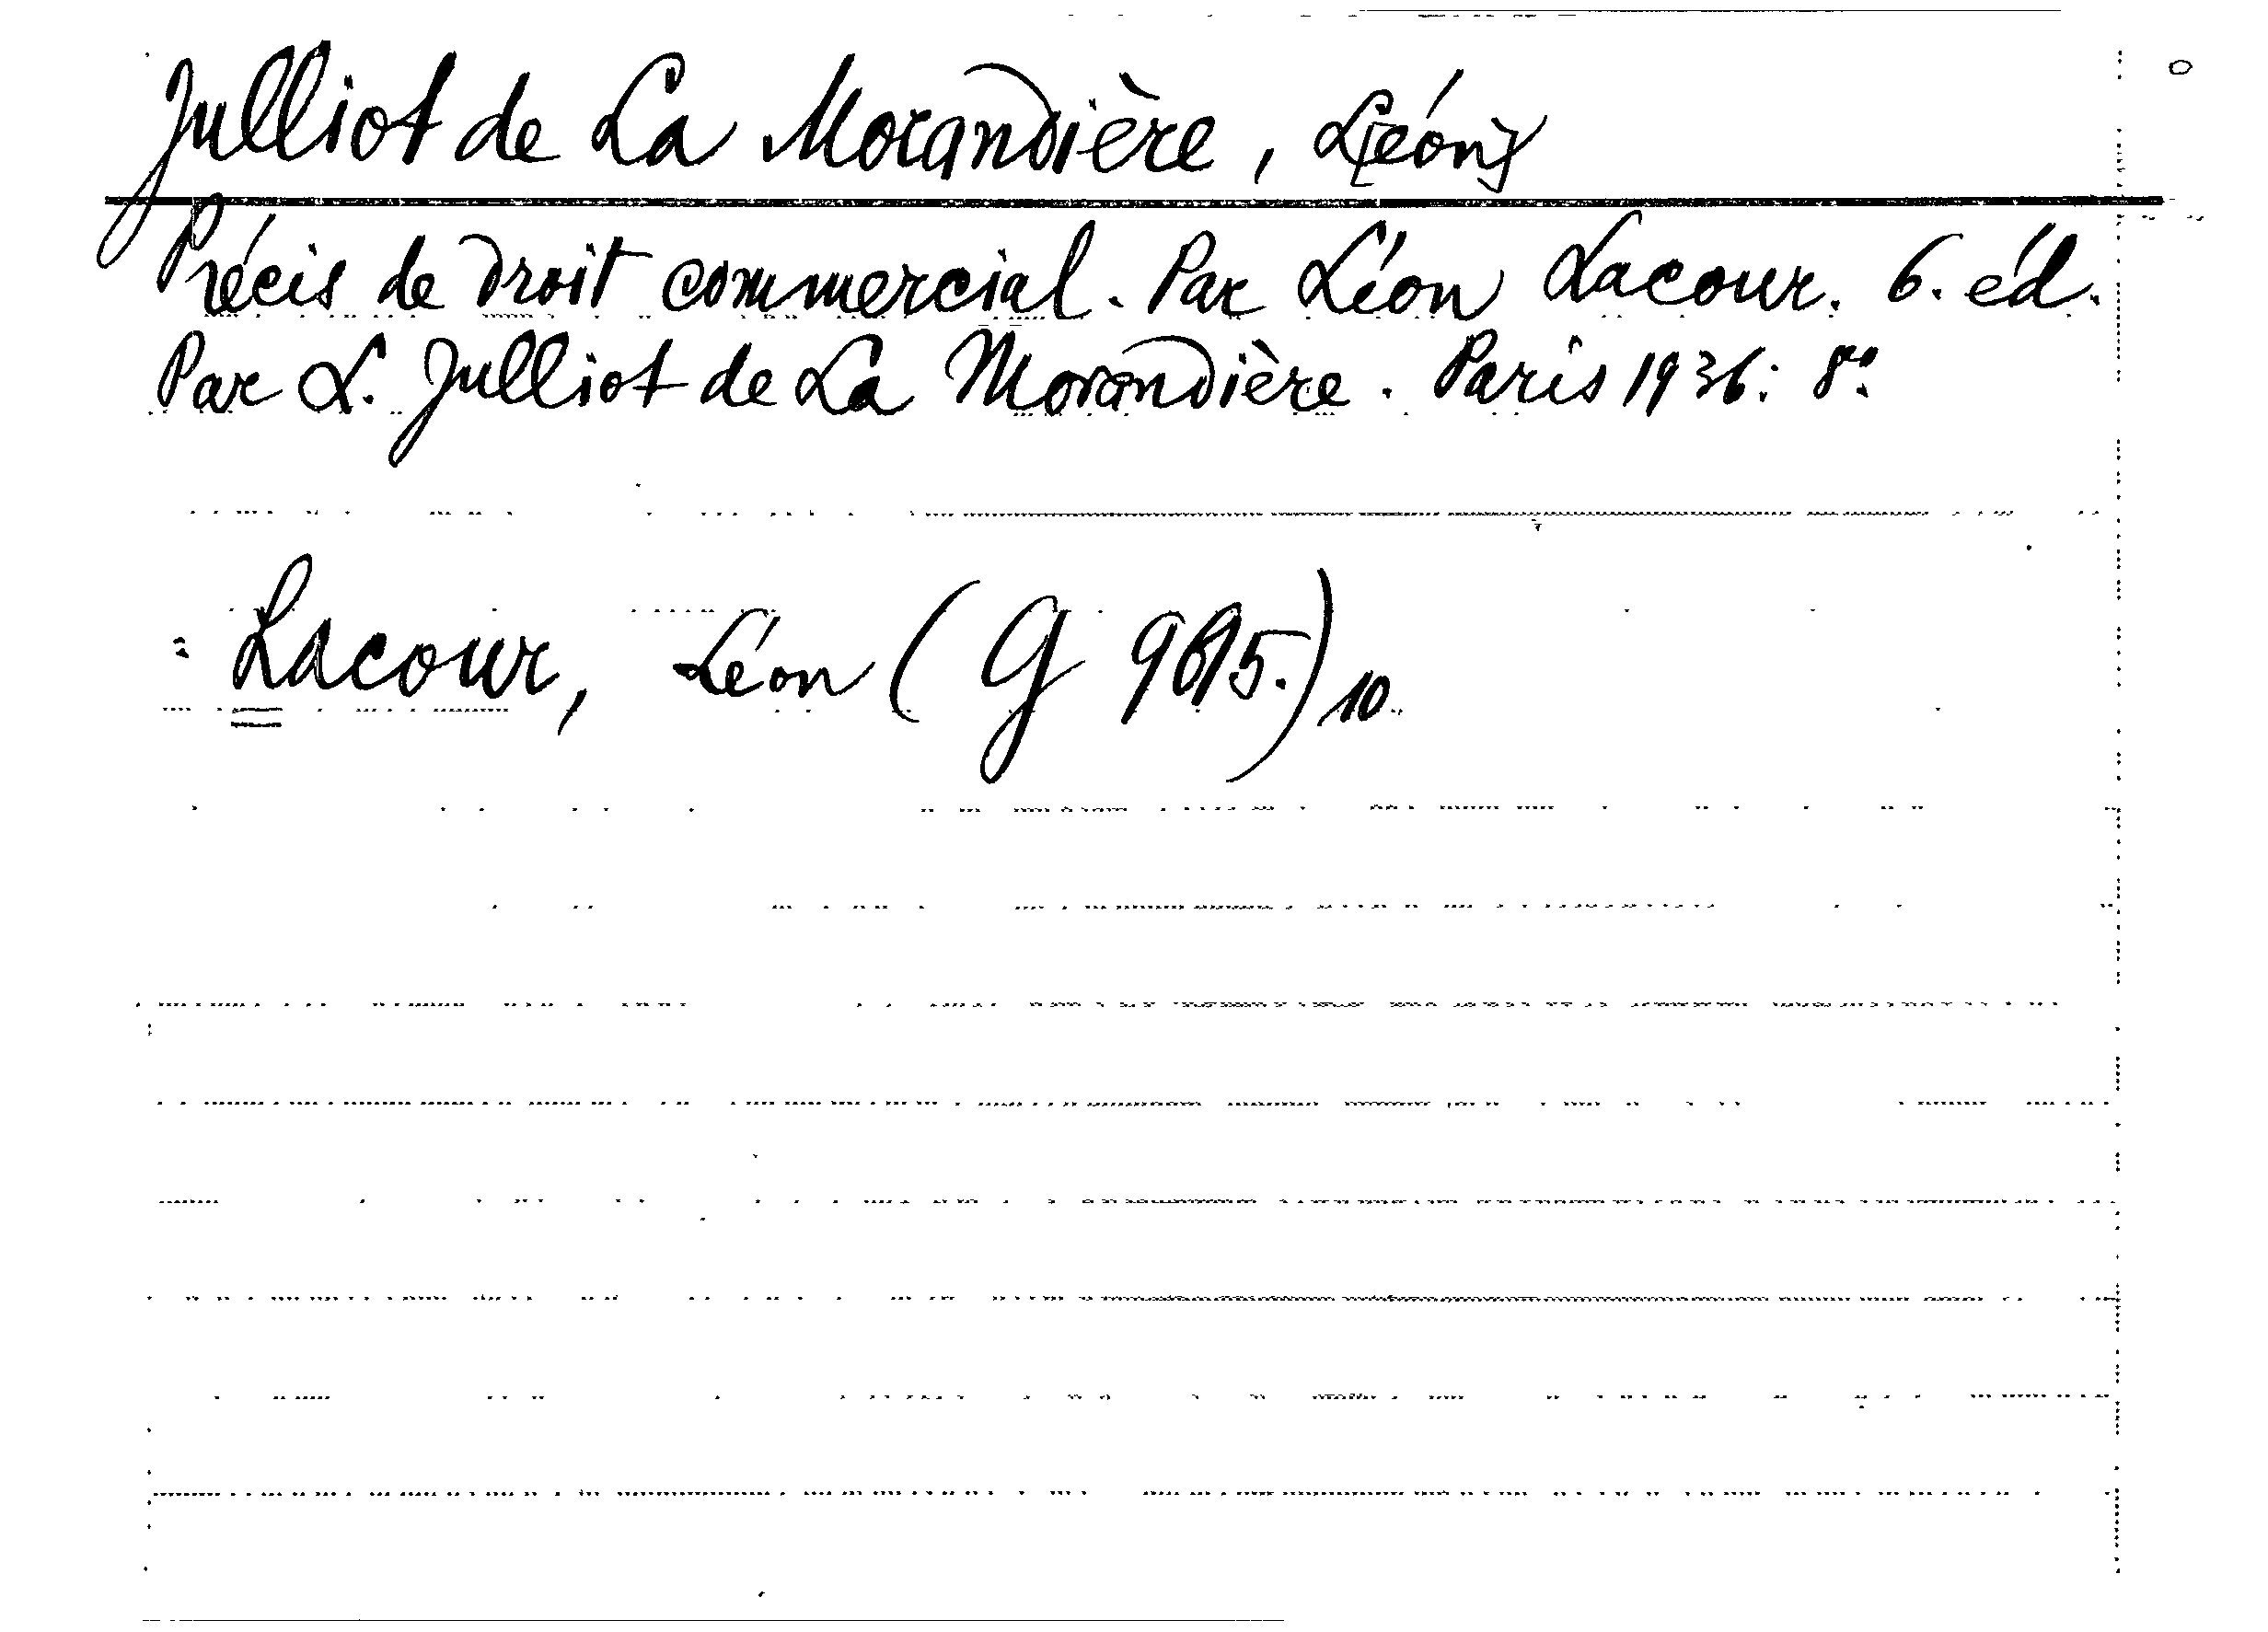 Julliot de La Morandière, L[éon]
Précis de droit commercial. Par Léon Lacour. 6. éd.
Par L. Julliot de La Morandière. Paris 1936: 8o.
= Lacour, Léon (G 9695.) 10